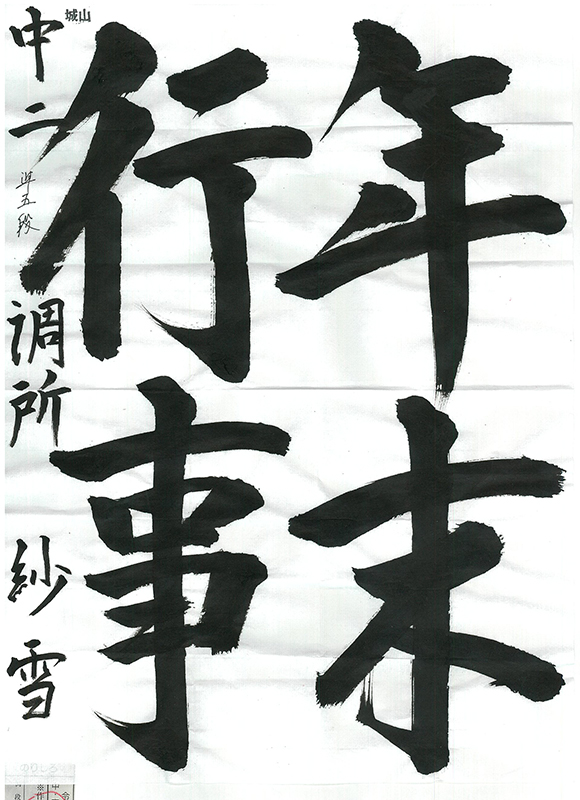 年末
行事
中二 準五段 調所 紗雪
城山